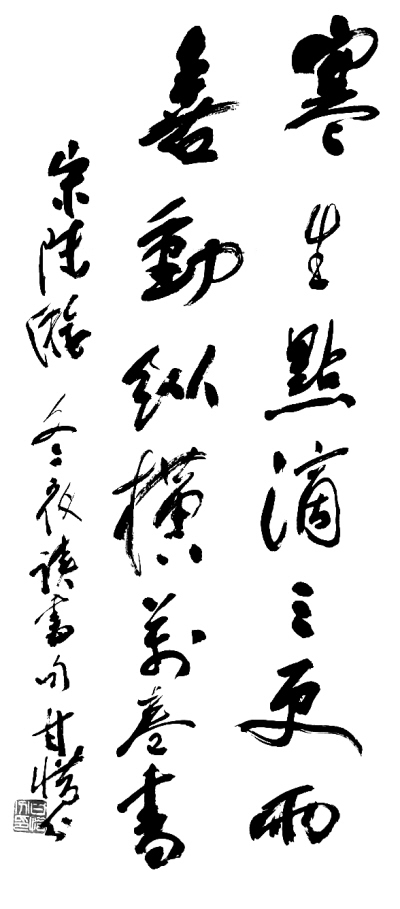 寒生點滴三更雨
喜動縱橫萬卷書
宋陸游冬夜讀書句